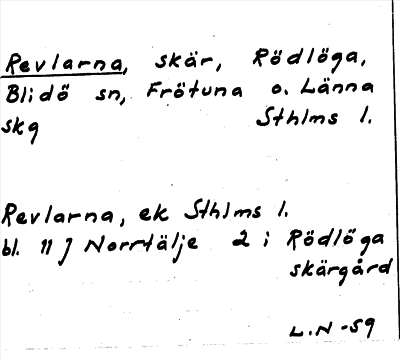 Revlarna, skär, Rödlöga,
Blidö sn, Frötuna o. Länna
skg Sthlms l.
Revlarna, ek Sthlms l.
bl. 11 J Norrtälje 2 i Rödlöga
skärgård
L.N -59